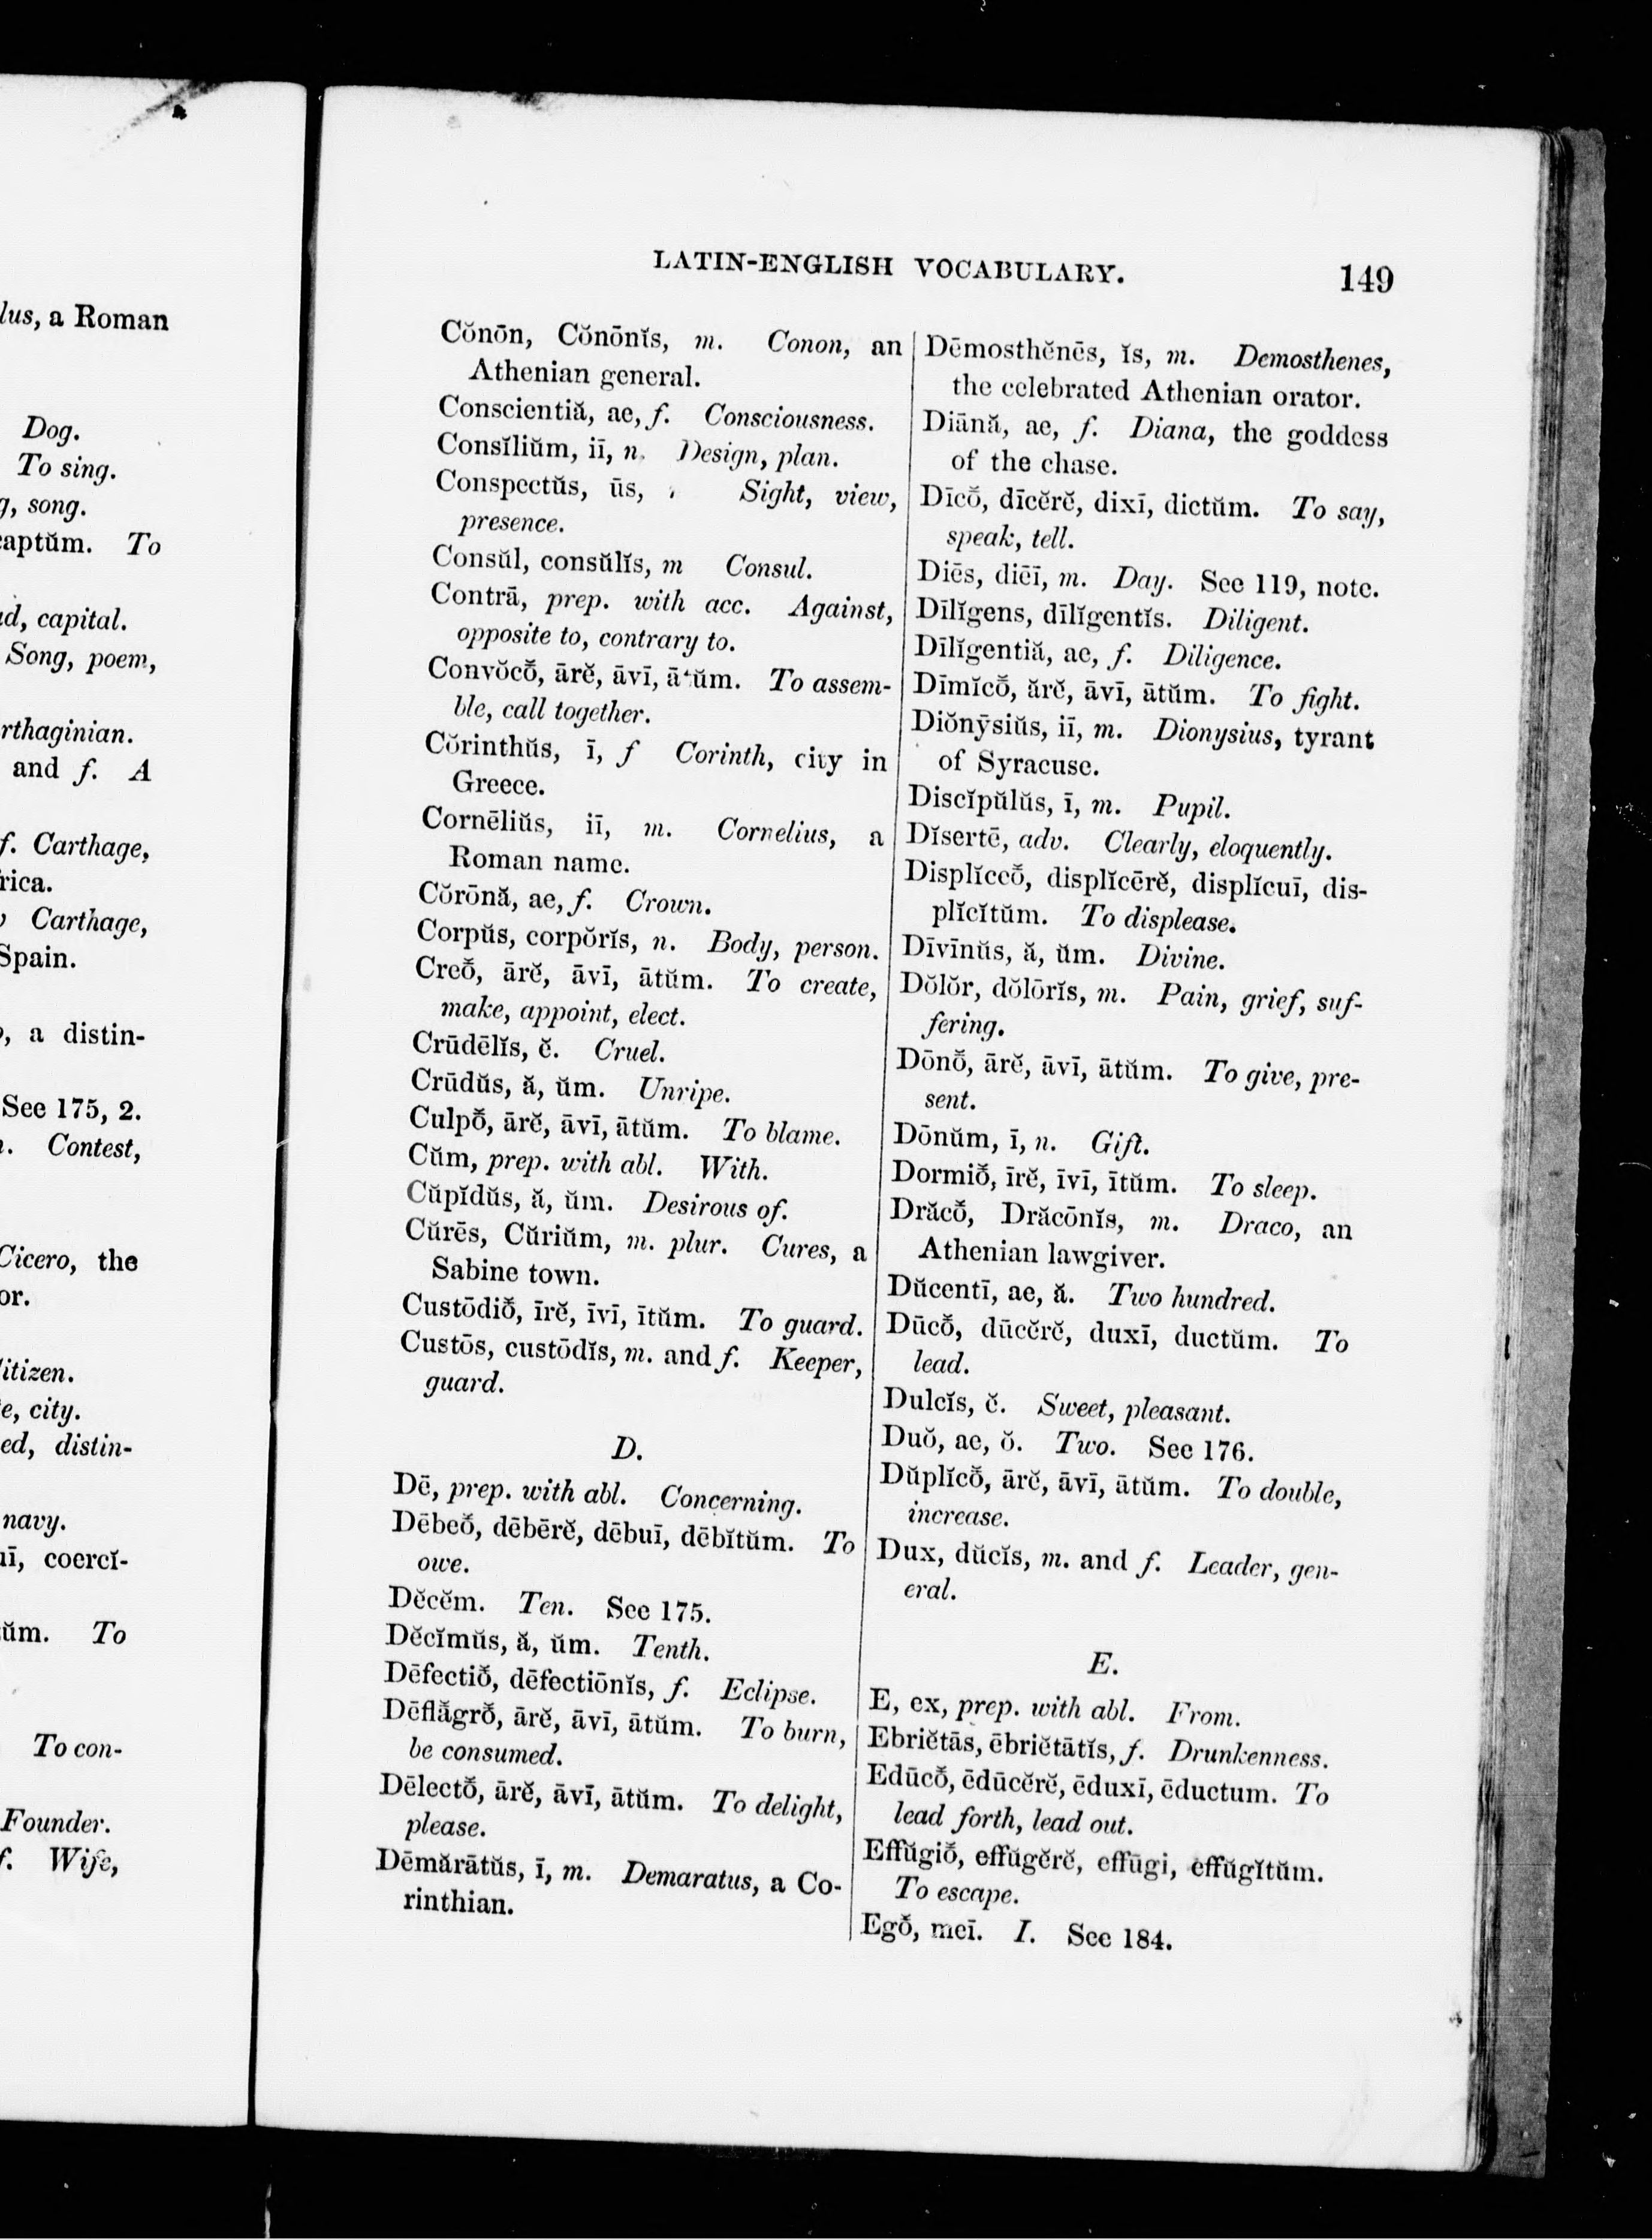 lus, a Roman
Dog.
To sing.
song.
captŭm. To
capital.
Song, poem,
rthaginian.
and f. A
f. Carthage,
rica.
Carthage,
Spain.
a distin-
See 175, 2.
Contest,
Cicero, the
or.
itizen.
city.
ed, distin-
navy.
uī, coercĭ-
ŭm. To
To con-
Founder.
f. Wife,
LATIN-ENGLISH VOCABULARY. 149
Cŏnōn, Cŏnōnĭs, m. Conon, an
Athenian general.
Conscientiă, ae, f. Consciousness.
Consĭliŭm, iī, n. Design, plan.
Conspectŭs, ūs, Sight, view,
presence.
Consŭl, consŭlĭs, m Consul.
Contrā, prep. with acc. Against,
opposite to, contrary to.
Convŏcō̆, ārĕ, āvī, ātŭm. To assem-
ble, call together.
Cŏrinthŭs, ī, f Corinth, city in
Greece.
Cornēliŭs, iī, m. Cornelius, a
Roman name.
Cŏrōnă, ae, f. Crown.
Corpŭs, corpŏrĭs, n. Body, person.
Creō̆, ārĕ, āvī, ātŭm. To create,
make, appoint, elect.
Crūdēlĭs, ĕ. Cruel.
Crūdŭs, ă, ŭm. Unripe.
Culpō̆, ārĕ, āvī, ātŭm. To blame.
Cŭm, prep. with abl. With.
Cŭpĭdŭs, ă, ŭm. Desirous of.
Cŭrēs, Cŭriŭm, m. plur. Cures, a
Sabine town.
Custōdiō̆, īrĕ, īvī, ītŭm. To guard.
Custōs, custōdĭs, m. and f. Keeper,
guard.
D.
Dē, prep. with abl. Concerning.
Dēbeō̆, dēbērĕ, dēbuī, dēbĭtŭm. To
owe.
Dĕcĕm. Ten. See 175.
Dĕcĭmŭs, ă, ŭm. Tenth.
Dēfectiō̆, dēfectiōnĭs, f. Eclipse.
Dēflā̆grō̆, ārĕ, āvī, ātŭm. To burn,
be consumed.
Dēlectō̆, ārĕ, āvī, ātŭm. To delight,
please.
Dēmărātŭs, ī, m. Demaratus, a Co-
rinthian.
Dēmosthĕnēs, ĭs, m. Demosthenes,
the celebrated Athenian orator.
Diānă, ae, f. Diana, the goddess
of the chase.
Dīcō̆, dīcĕrĕ, dixī, dictŭm. To say,
speak, tell.
Diēs, diēī, m. Day. See 119, note.
Dīlĭgens, dīlĭgentĭs. Diligent.
Dīlĭgentiă, ae, f. Diligence.
Dīmĭcō̆, ărĕ, āvī, ātŭm. To fight.
Diŏnȳsiŭs, iī, m. Dionysius, tyrant
of Syracuse.
Discĭpŭlŭs, ī, m. Pupil.
Dĭsertē, adv. Clearly, eloquently.
Displĭceō̆, displĭcērĕ, displĭcuī, dis-
plĭcĭtŭm. To displease.
Dīvīnŭs, ă, ŭm. Divine.
Dŏlŏr, dŏlōrĭs, m. Pain, grief, suf-
fering.
Dōnō̆, ārĕ, āvī, ātŭm. To give, pre-
sent.
Dōnŭm, ī, n. Gift.
Dormiō̆, īrĕ, īvī, ītŭm. To sleep.
Drăcō̆, Drăcōnĭs, m. Draco, an
Athenian lawgiver.
Dŭcentī, ae, ă. Two hundred.
Dūcō̆, dūcĕrĕ, duxī, ductŭm. To
lead.
Dulcĭs, ĕ. Sweet, pleasant.
Duŏ, ae, ŏ. Two. See 176.
Dŭplĭcō̆, ārĕ, āvī, ātŭm. To double,
increase.
Dux, dŭcĭs, m. and f. Leader, gen-
eral.
E.
E, ex, prep. with abl. From.
Ebriĕtās, ēbriĕtātĭs, f. Drunkenness.
Edūcō̆, ēdūcĕrĕ, ēduxī, ēductum. To
lead forth, lead out.
Effŭgiō̆, effŭgĕrĕ, effūgi, effŭgĭtŭm.
To escape.
Egō̆, meī. I. See 184.